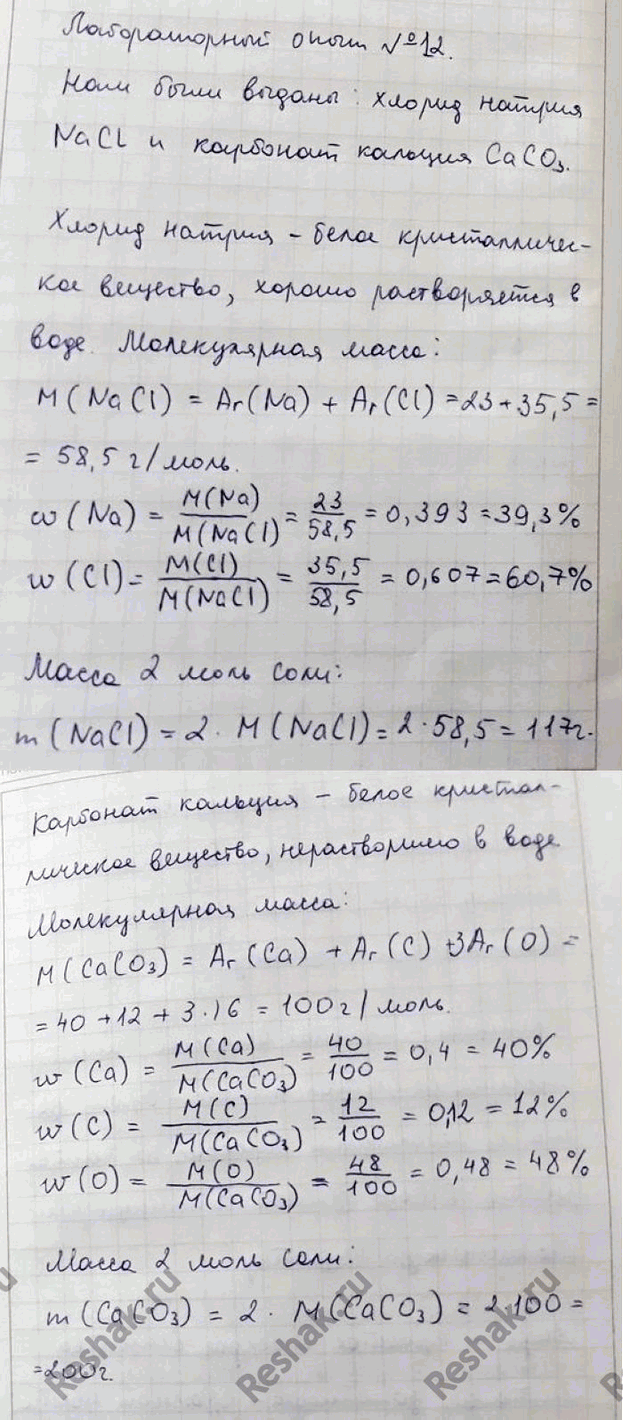 Лабораторный опыт №12.
Нам были выданы: хлорид натрия
NaCl и карбонат кальция CaCO₃.
Хлорид натрия – белое кристалличес-
кое вещество, хорошо растворяется в
воде. Молекулярная масса:
M(NaCl) = Ar(Na) + Ar(Cl) = 23 + 35,5 =
= 58,5 г/моль.
w(Na) = M(Na)/M(NaCl) = 23/58,5 = 0,393 = 39,3%
w(Cl) = M(Cl)/M(NaCl) = 35,5/58,5 = 0,607 = 60,7%
Масса 2 моль соли:
m(NaCl) = 2 · M(NaCl) = 2 · 58,5 = 117г.
Карбонат кальция – белое кристал-
лическое вещество, нерастворимо в воде
Молекулярная масса:
M(CaCO₃) = Ar(Ca) + Ar(C) + 3Ar(O) =
= 40 + 12 + 3 · 16 = 100 г/моль.
w(Ca) = M(Ca)/M(CaCO₃) = 40/100 = 0,4 = 40%
w(C) = M(C)/M(CaCO₃) = 12/100 = 0,12 = 12%
w(O) = M(O)/M(CaCO₃) = 48/100 = 0,48 = 48%
Масса 2 моль соли:
m(CaCO₃) = 2 · M(CaCO₃) = 2 · 100 =
= 200г.
Reshak.ru
Reshak.ru
Reshak.ru